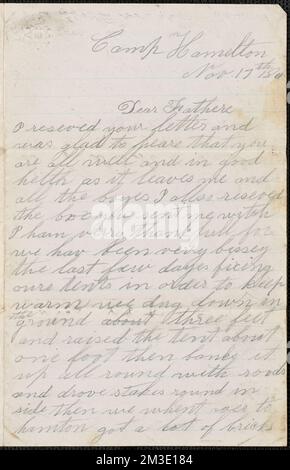 Camp Hamelton
Nov. 17th
Dear Feathere
I reseved your letter and
was glad to heare that you
are all well and in good
helth as it leaves me and
all the boyes I also reseved
the box you sent me witch
I ham very thank full for
we hav ben very bissey
the last few dayes fixing
oure tents in order to keep
warm wee dug down in
the ground about three feet
and raised the tent about
one foot then banks it
up all round with sods
and drove stakes round in
side then we whent over to
hamton got a lot of bricks
alamy
Image ID: 2M3E184
www.alamy.com